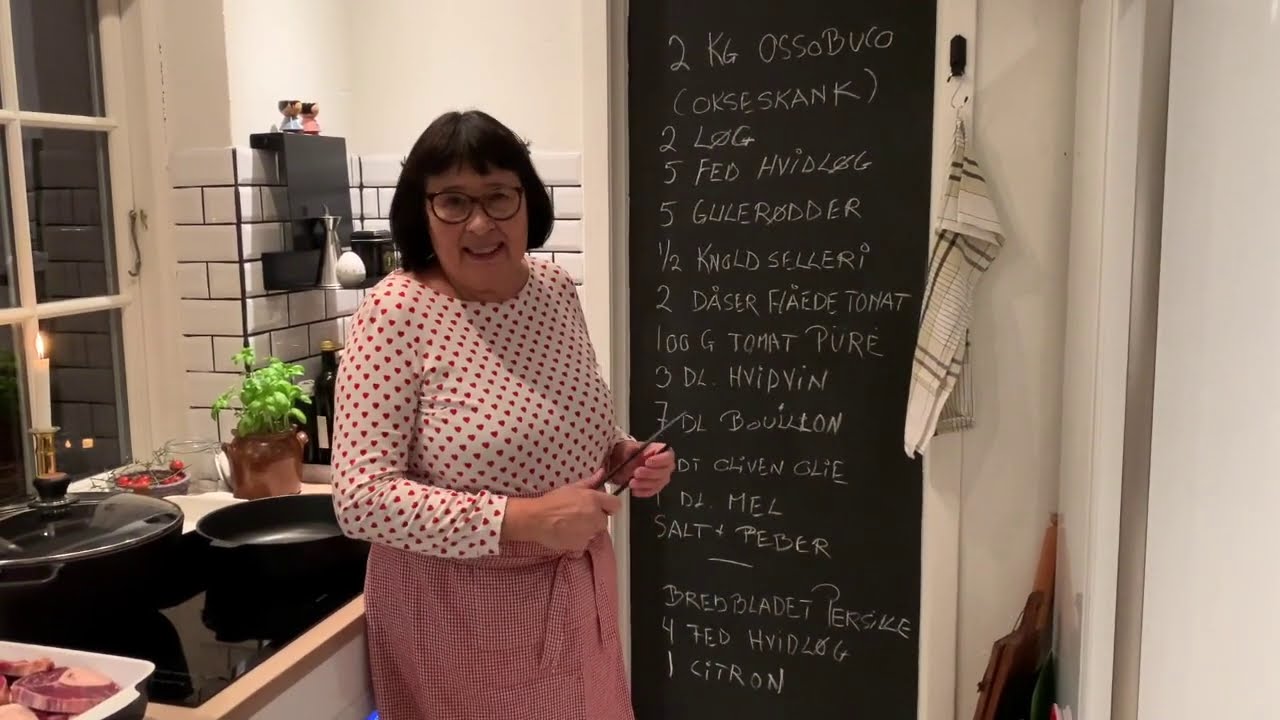 2 KG OSSOBUCO
(OKSESKANK)
2 LØG
5 FED HVIDLØG
5 GULERØDDER
1/2 KNOLD SELLERI
2 DÅSER FLÅEDE TOMAT
100 G TOMAT PURÉ
3 DL. HVIDVIN
7 DL BOUILLON
DT OLIVEN OLIE
1 DL. MEL
SALT + PEBER
BREDBLADET PERSILLE
4 FED HVIDLØG
1 CITRON